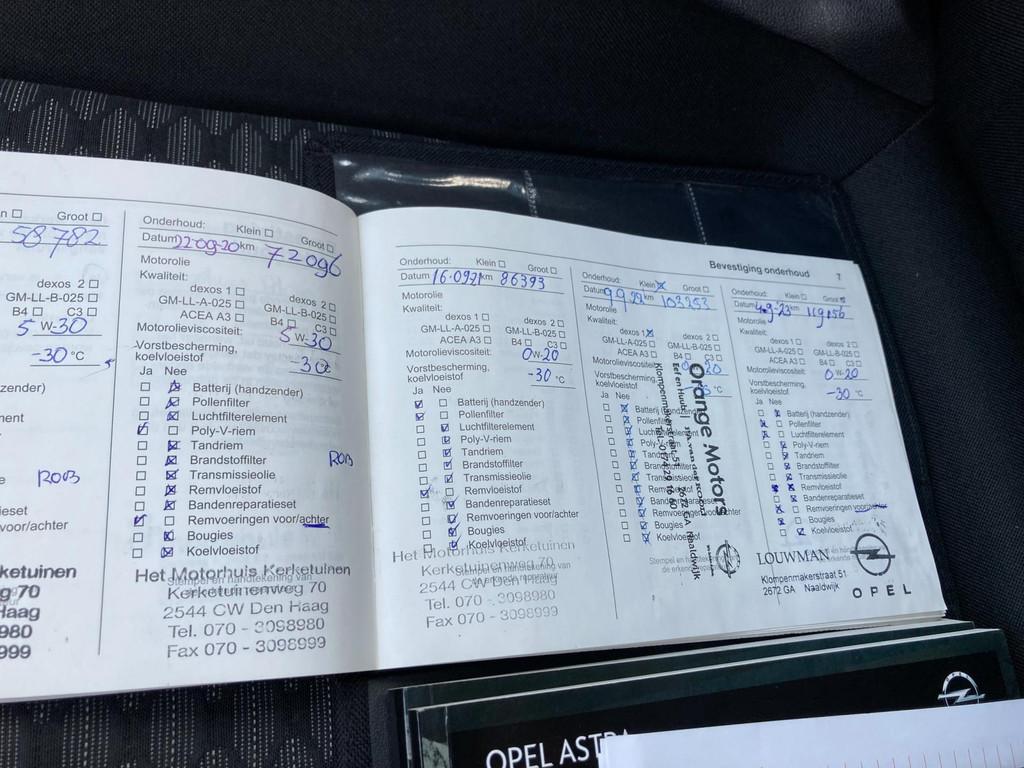 Groot
58782
dexos 2
GM-LL-B-025
B4 C3
5 W-30
-30 °C
zender)
ROB
voor/achter
ketuinen
g 70
Haag
980
999
Onderhoud: Klein Groot
Datum 22-09-20 km 72096
Motorolie
Kwaliteit:
dexos 1 dexos 2
GM-LL-A-025 GM-LL-B-025
ACEA A3 B4 C3
Motorolieviscositeit: 5 W-30
Vorstbescherming,
koelvloeistof -30 °C
Ja Nee
Batterij (handzender)
Pollenfilter
Luchtfilterelement
Poly-V-riem
Tandriem
Brandstoffilter
ROB
Transmissieolie
Remvloeistof
Bandenreparatieset
Remvoeringen voor/achter
Bougies
Koelvloeistof
Stempel en handtekening van
Het Motorhuis Kerketuinen
Kerketuinenweg 70
2544 CW Den Haag
Tel. 070 - 3098980
Fax 070 - 3098999
Bevestiging onderhoud 7
Onderhoud: Klein Groot
Datum 16-0921 km 86393
Motorolie
Kwaliteit:
dexos 1 dexos 2
GM-LL-A-025 GM-LL-B-025
ACEA A3 B4 C3
Motorolieviscositeit: 0W-20
Vorstbescherming,
koelvloeistof -30 °C
Ja Nee
Batterij (handzender)
Pollenfilter
Luchtfilterelement
Poly-V-riem
Tandriem
Brandstoffilter
Transmissieolie
Remvloeistof
Bandenreparatieset
Remvoeringen voor/achter
Bougies
Koelvloeistof
Het Motorhuis Kerketuinen
Kerketuinenweg 70
2544 CW Den Haag
Tel. 070 - 3098980
Fax 070 - 3098999
Onderhoud: Klein Groot
Datum 9 9 22 km 103253
Motorolie
Kwaliteit:
dexos 1 dexos 2
GM-LL-A-025 GM-LL-B-025
ACEA A3 B4 C3
Motorolieviscositeit: 20
Vorstbescherming,
koelvloeistof °C
Ja Nee
Batterij (handzender)
Pollenfilter
Luchtfilterelement
Tandriem
Brandstoffilter
Transmissieolie
Bandenreparatieset
Remvoeringen voor/achter
Bougies
Koelvloeistof
Orange Motors
Klompenmakerstraat 51 2672 GA Naaldwijk
Onderhoud: Klein Groot
Datum 4-9-23 km 119056
Motorolie
Kwaliteit:
dexos 1 dexos 2
GM-LL-A-025 GM-LL-B-025
ACEA A3 B4 C3
Motorolieviscositeit: 0 W-20
Vorstbescherming,
koelvloeistof -30 °C
Ja Nee
Batterij (handzender)
Pollenfilter
Luchtfilterelement
Poly-V-riem
Tandriem
Brandstoffilter
Transmissieolie
Remvloeistof
Bandenreparatieset
Remvoeringen voor/achter
Bougies
Koelvloeistof
LOUWMAN
Klompenmakerstraat 51
2672 GA Naaldwijk
OPEL
OPEL ASTRA